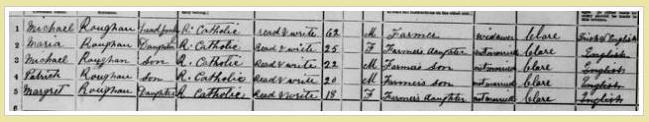 1 Michael Roughan R. Catholic read & write 62 M Farmer widower Clare Irish & English
2 Maria Roughan Daughter R. Catholic Read & write 25 F Farmer's daughter not married Clare English
3 Michael Roughan Son R. Catholic Read & write 22 M Farmer's son not married Clare English
4 Patrick Roughan Son R. Catholic Read & write 20 M Farmer's son not married Clare English
5 Margret Roughan Daughter R Catholic Read & write 18 F Farmer's daughter not married Clare English
6